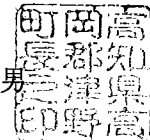 高知県高
岡郡津野
町長之印
男